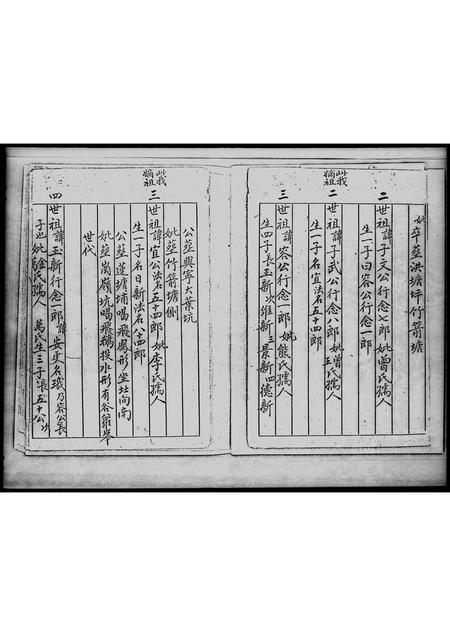 妣卒葬洪塘坪竹箭塘
二世祖諱子文公行念七郎妣曾氏孺人
生一子曰容公行念一郎
此我嫡祖
二世祖諱子武公行念八郎妣曾氏王氏孺人
生一子名宜法名五十四郎
三世祖諱容公行念一郎妣熊氏孺人
生四子長玉新次維新三景新四德新
公葬興寧大葉坑
妣葬竹箭塘側
此我嫡祖
三世祖諱宜公法名五十四郎妣李氏孺人
生一子名日新法名八四郎
公葬蓮塘埔喝飛鳳形坐北向南
妣葬崗嶺坑喝飛鵝投水形有谷籮峯
世代
四世祖諱玉新行念一郎諱安叟名璣乃容公長
子也妣氏孺人萬氏生三子長五十公次